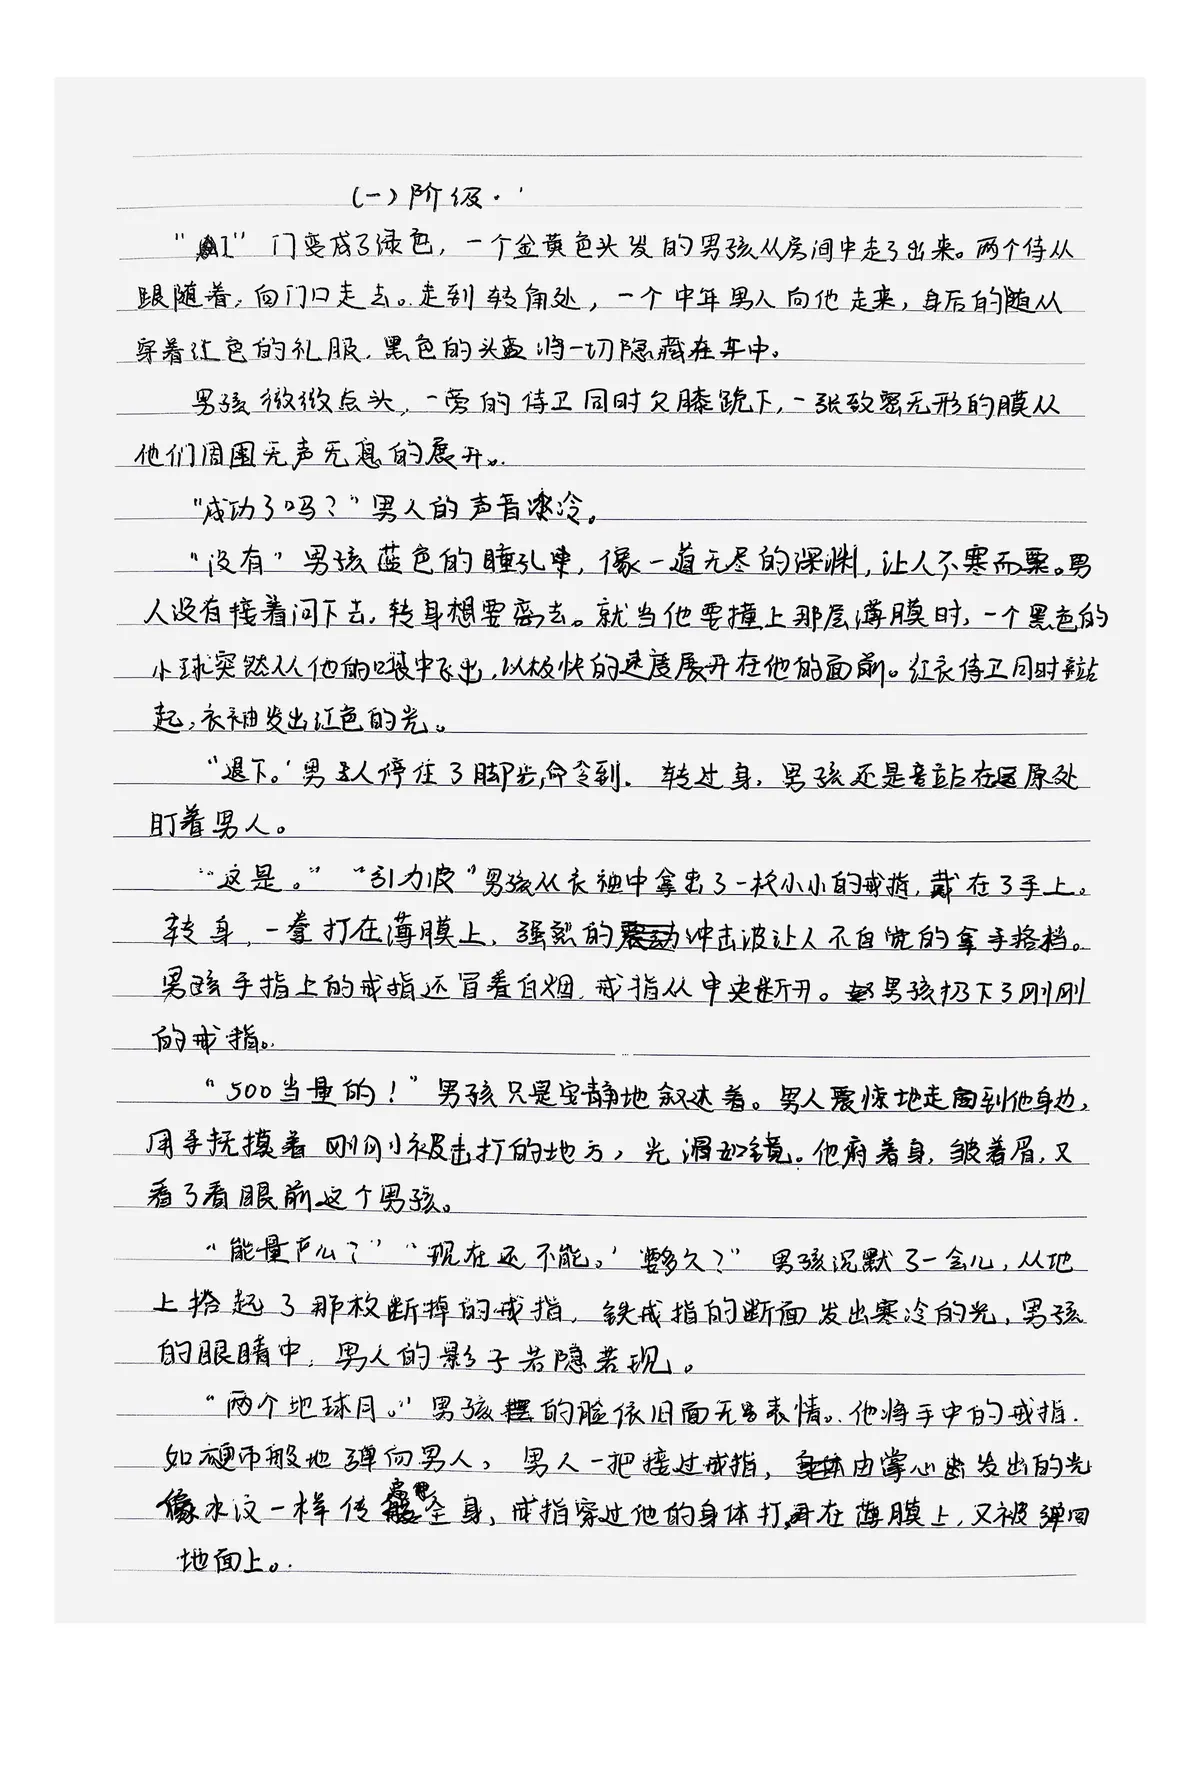 (一)阶级.
" " 门变成了绿色，一个金黄色头发的男孩从房间中走了出来。两个侍从
跟随着，向门口走去。走到转角处，一个中年男人向他走来，身后的随从
穿着红色的礼服，黑色的头盔将一切隐藏在车中。
男孩微微点头，一旁的侍卫同时欠膝跪下，一张致密无形的膜从
他们周围无声无息的展开。
"成功了吗？"男人的声音冰冷。
"没有"男孩蓝色的瞳孔中，像一道无尽的深渊，让人不寒而栗。男
人没有接着问下去，转身想要离去。就当他要撞上那层薄膜时，一个黑色的
小球突然从他的口袋中飞出，以极快的速度展开在他的面前。红衣侍卫同时站
起，衣袖发出红色的光。
"退下。"男人停住了脚步，命令到. 转过身，男孩还是站在原处
盯着男人。
"这是。" "引力波"男孩从衣袖中拿出了一枚小小的戒指，戴在了手上。
转身，一拳打在薄膜上，强烈的冲击波让人不自觉的拿手格档。
男孩手指上的戒指还冒着白烟，戒指从中央断开。男孩扔下了刚刚
的戒指。
"500当量的！"男孩只是安静地叙述着。男人震惊地走到他身边，
用手抚摸着刚刚被击打的地方，光滑如镜。他俯着身，皱着眉，又
看了看眼前这个男孩。
"能量产么？" "现在还不能。" "要多久？" 男孩沉默了一会儿，从地
上捡起了那枚断掉的戒指，铁戒指的断面发出寒冷的光，男孩
的眼睛中，男人的影子若隐若现。
"两个地球月。"男孩的脸依旧面无表情。他将手中的戒指.
如硬币般地弹向男人，男人一把接过戒指，由掌心发出的光
像水汶一样传遍全身，戒指穿过他的身体打在薄膜上，又被弹回
地面上。